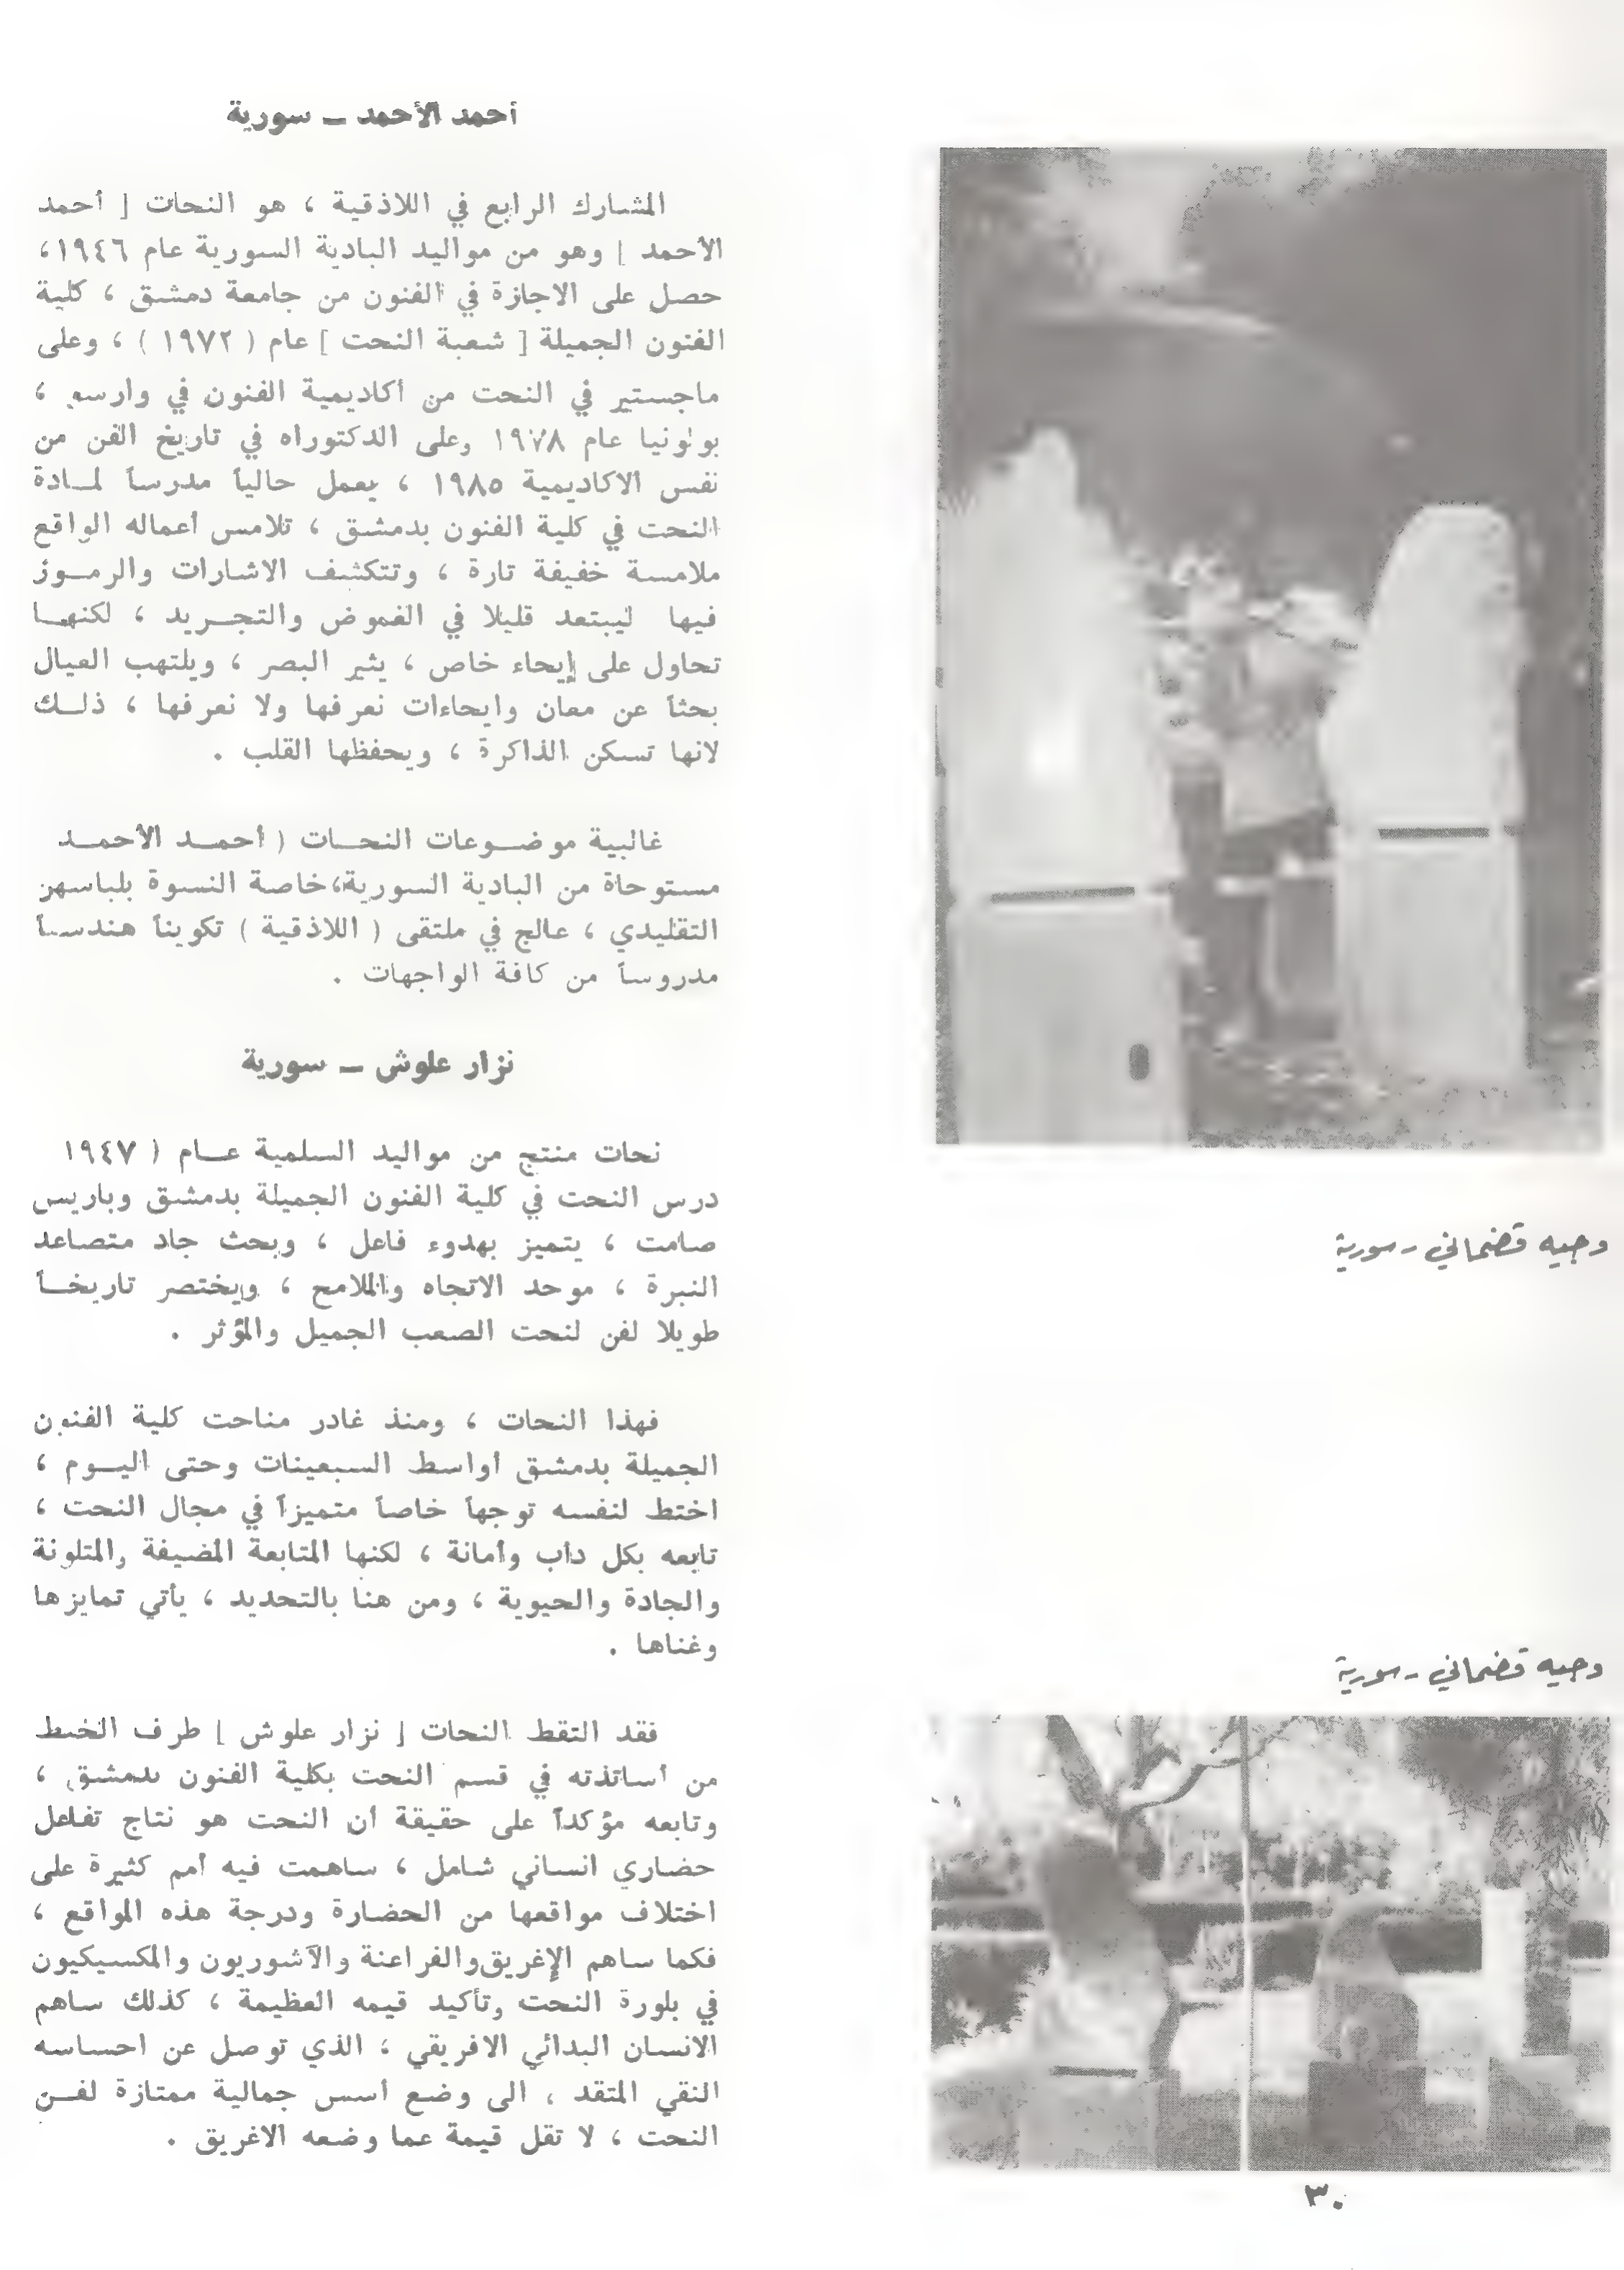 وجيه قضماني - سورية
وجيه قضماني - سورية
٣٠
أحمد الأحمد ــ سورية
المشارك الرابع في اللاذقية ، هو النحات [ أحمد
الأحمد ] وهو من مواليد البادية السورية عام ١٩٤٦،
حصل على الاجازة في الفنون من جامعة دمشق ، كلية
الفنون الجميلة [ شعبة النحت ] عام ( ١٩٧٢ ) ، وعلى
ماجستير في النحت من أكاديمية الفنون في وارسو ،
بولونيا عام ١٩٧٨ وعلى الدكتوراه في تاريخ الفن من
نفس الاكاديمية ١٩٨٥ ، يعمل حالياً مدرساً لمــادة
النحت في كلية الفنون بدمشق ، تلامس أعماله الواقع
ملامسة خفيفة تارة ، وتتكشف الاشارات والرمــوز
فيها ليبتعد قليلا في الغموض والتجــريد ، لكنهــا
تحاول على إيحاء خاص ، يثير البصر ، ويلتهب الخيال
بحثاً عن معان وايحاءات نعرفها ولا نعرفها ، ذلــك
لانها تسكن الذاكرة ، ويحفظها القلب .
غالبية موضــوعات النحــات ( أحمــد الأحمــد
مستوحاة من البادية السورية،خاصة النسوة بلباسهن
التقليدي ، عالج في ملتقى ( اللاذقية ) تكويناً هندسياً
مدروساً من كافة الواجهات .
نزار علوش ــ سورية
نحات منتج من مواليد السلمية عــام ( ١٩٤٧
درس النحت في كلية الفنون الجميلة بدمشق وباريس
صامت ، يتميز بهدوء فاعل ، وبحث جاد متصاعد
النبرة ، موحد الاتجاه والملامح ، ويختصر تاريخــاً
طويلا لفن لنحت الصعب الجميل والمؤثر .
فهذا النحات ، ومنذ غادر مناحت كلية الفنون
الجميلة بدمشق أواسط السبعينات وحتى اليــوم ،
اختط لنفسه توجهاً خاصاً متميزاً في مجال النحت ،
تابعه بكل دأب وأمانة ، لكنها المتابعة المضيفة والمتلونة
والجادة والحيوية ، ومن هنا بالتحديد ، يأتي تمايزها
وغناها .
فقد التقط النحات [ نزار علوش ] طرف الخيط
من أساتذته في قسم النحت بكلية الفنون بدمشق ،
وتابعه مؤكداً على حقيقة أن النحت هو نتاج تفاعل
حضاري انساني شامل ، ساهمت فيه أمم كثيرة على
اختلاف مواقعها من الحضارة ودرجة هذه المواقع ،
فكما ساهم الإغريق والفراعنة والآشوريون والمكسيكيون
في بلورة النحت وتأكيد قيمه العظيمة ، كذلك ساهم
الانسان البدائي الافريقي ، الذي توصل عن احساسه
النقي المتقد ، الى وضع أسس جمالية ممتازة لفــن
النحت ، لا تقل قيمة عما وضعه الاغريق .